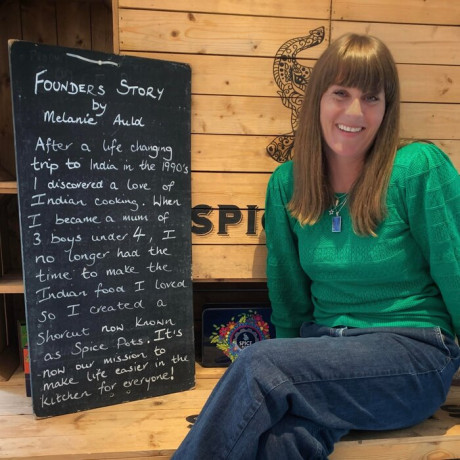 Founders Story
by
Melanie Auld
After a life changing
trip to India in the 1990's
I discovered a love of
Indian cooking. When
I became a mum of
3 boys under 4, I
no longer had the
time to make the
Indian food I loved
so I created a
Shorcut now known
as Spice Pots. It's
now our mission to
make life easier in the
kitchen for everyone!
SPIC
SPICE